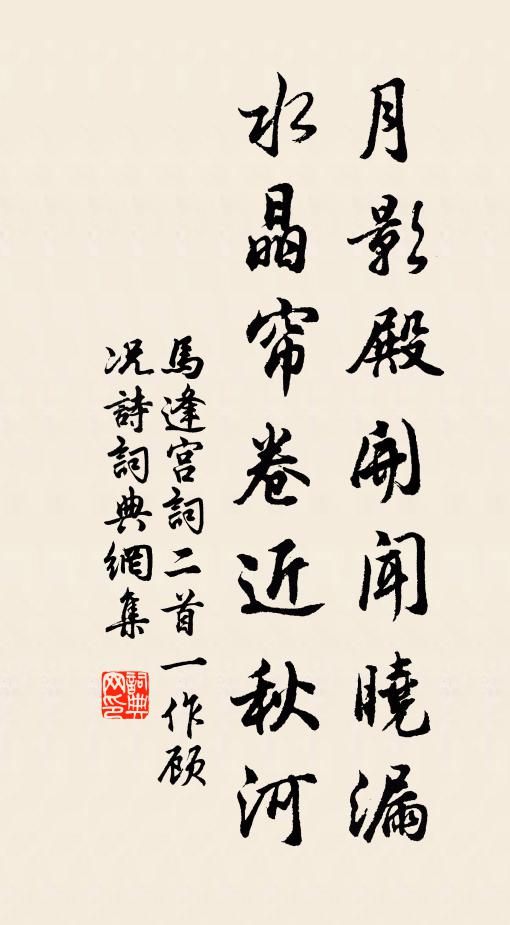 月影殿開聞曉漏
水晶帘卷近秋河
馬逢宮詞二首一作顾
况詩詞典網集
詞典网印